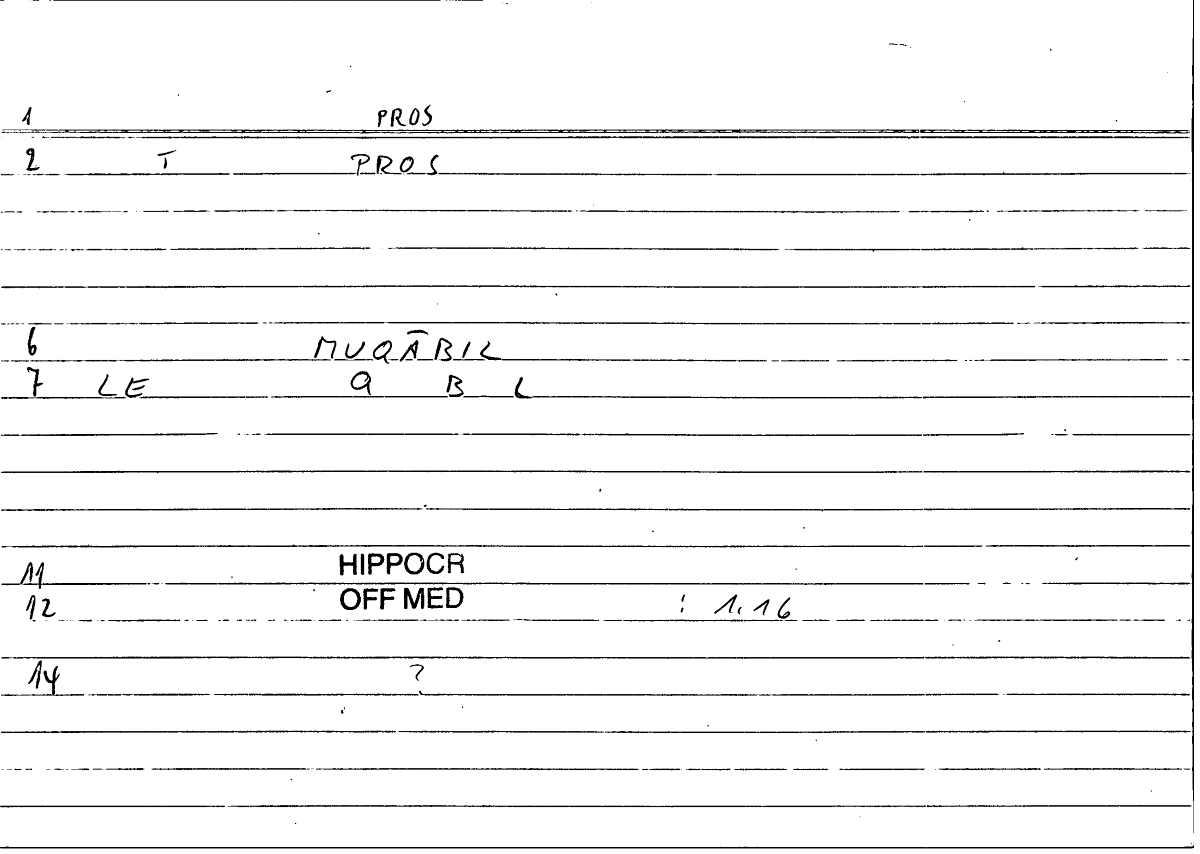 1 PROS
2 T PROS
6 MUQĀBIL
7 LE Q B L
11 HIPPOCR
12 OFF MED : 1.16
14 ?